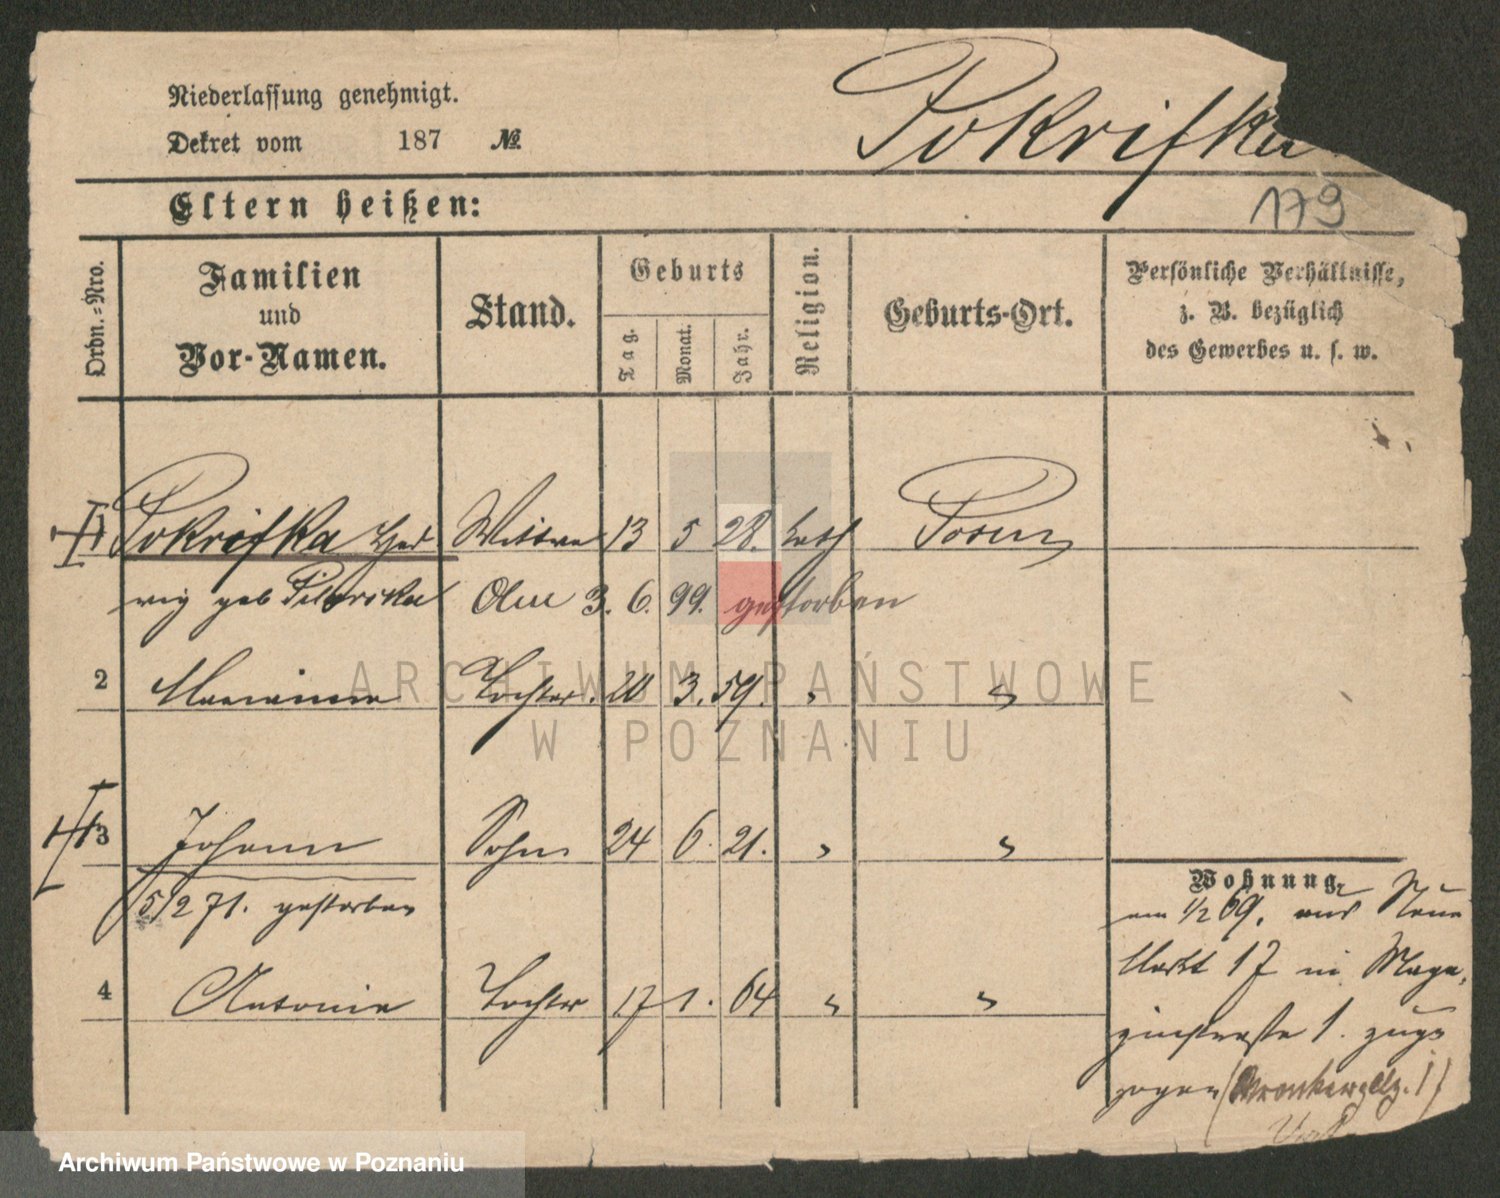 Niederlassung genehmigt.
Pokrifka
Dekret vom 187 №
Eltern heißen:
179
Ordn.=Nro.
Familien und Vor-Namen.
Stand.
Geburts
Tag.
Monat.
Jahr.
Religion.
Geburts-Ort.
Persönliche Verhältnisse,
z. B. bezüglich
des Gewerbes u. s. w.
1 Pokrifka Hed Wittwe 13 5 28. kath Posen
wig geb 3. 6. 99. gestorben
2 Marianna Tochter. 20 3. 59. " "
3 Johann Sohn 24 6. 21. " "
5/2 71. gestorben
4 Antonie Tochter 17 1. 64 " "
Wohnung
am 1/2 69. aus Neue
Markt 17 in Maga
zinstraße 1. zuge
zogen (Wronkerplz. 1)
ARCHIWUM PAŃSTWOWE
W POZNANIU
Archiwum Państwowe w Poznaniu